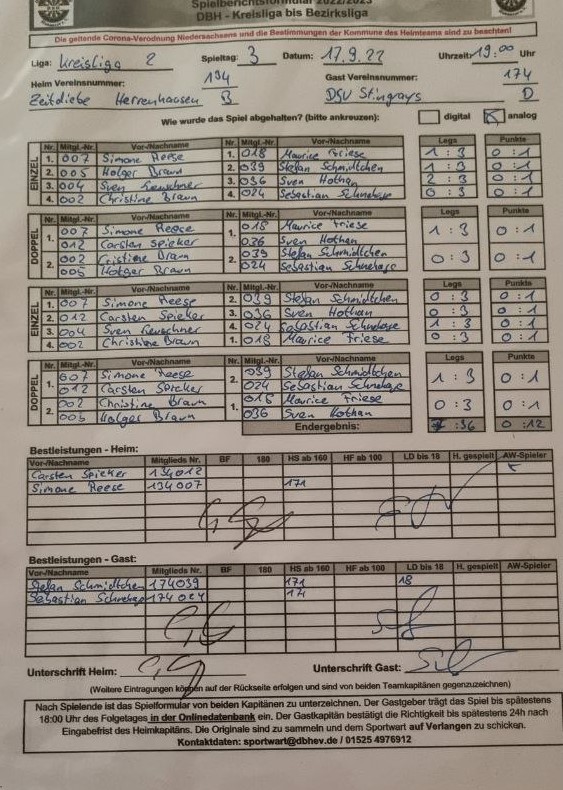 Spielberichtsformular 2022/2023
DBH - Kreisliga bis Bezirksliga
Die geltende Corona-Verordnung Niedersachsens und die Bestimmungen der Kommune des Heimteams sind zu beachten!
Liga: Kreisliga 2 Spieltag: 3 Datum: 17.9.22 Uhrzeit: 19:00 Uhr
Heim Vereinsnummer: 134 Gast Vereinsnummer: 174
Zeitdiebe Herrenhausen B DSV Stingrays D
Wie wurde das Spiel abgehalten? (bitte ankreuzen): digital analog
EINZEL Nr. Mitgl.-Nr. Vor-/Nachname Nr. Mitgl.-Nr. Vor-/Nachname Legs Punkte
1. 007 Simone Reese 1. 018 Maurice Friese 1 : 3 0 : 1
2. 005 Holger Braun 2. 039 Stefan Schmidtchen 1 : 3 0 : 1
3. 004 Sven Keuschner 3. 036 Sven Hothan 2 : 3 0 : 1
4. 002 Christine Braun 4. 024 Sebastian Schnehage 0 : 3 0 : 1
DOPPEL Nr. Mitgl.-Nr. Vor-/Nachname Nr. Mitgl.-Nr. Vor-/Nachname Legs Punkte
1. 007 Simone Reese 1. 018 Maurice Friese 1 : 3 0 : 1
012 Carsten Spieker 036 Sven Hothan
2. 002 Cristine Braun 2. 039 Stefan Schmidtchen 0 : 3 0 : 1
005 Holger Braun 024 Sebastian Schnehage
EINZEL Nr. Mitgl.-Nr. Vor-/Nachname Nr. Mitgl.-Nr. Vor-/Nachname Legs Punkte
1. 007 Simone Reese 2. 039 Stefan Schmidtchen 0 : 3 0 : 1
2. 012 Carsten Spieker 3. 036 Sven Hothan 0 : 3 0 : 1
3. 004 Sven Keuschner 4. 024 Sebastian Schnehase 1 : 3 0 : 1
4. 002 Christine Braun 1. 018 Maurice Friese 0 : 3 0 : 1
DOPPEL Nr. Mitgl.-Nr. Vor-/Nachname Nr. Mitgl.-Nr. Vor-/Nachname Legs Punkte
1. 007 Simone Reese 2. 039 Stefan Schmidtchen 1 : 3 0 : 1
012 Carsten Spieker 024 Sebastian Schnehage
2. 002 Christine Braun 1. 018 Maurice Friese 0 : 3 0 : 1
005 Holger Braun 036 Sven Hothan
Endergebnis: : 36 0 : 12
Bestleistungen - Heim:
Vor-/Nachname Mitglieds Nr. BF 180 HS ab 160 HF ab 100 LD bis 18 H. gespielt AW-Spieler
Carsten Spieker 134012
Simone Reese 134007 171
Bestleistungen - Gast:
Vor-/Nachname Mitglieds Nr. BF 180 HS ab 160 HF ab 100 LD bis 18 H. gespielt AW-Spieler
Stefan Schmidtchen 174039 171 18
Sebastian Schnehage 174024
Unterschrift Heim: Unterschrift Gast:
(Weitere Eintragungen können auf der Rückseite erfolgen und sind von beiden Teamkapitänen gegenzuzeichnen)
Nach Spielende ist das Spielformular von beiden Kapitänen zu unterzeichnen. Der Gastgeber trägt das Spiel bis spätestens
18:00 Uhr des Folgetages in der Onlinedatenbank ein. Der Gastkapitän bestätigt die Richtigkeit bis spätestens 24h nach
Eingabefrist des Heimkapitäns. Die Originale sind zu sammeln und dem Sportwart auf Verlangen zu schicken.
Kontaktdaten: sportwart@dbhev.de / 01525 4976912